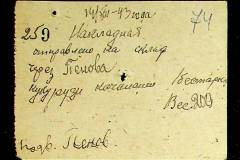 14/XII-43 года 74
259 Накладная
отправлено на склад
чрез Пенова
кукурузи початками
Вес 209
подв. Пенов